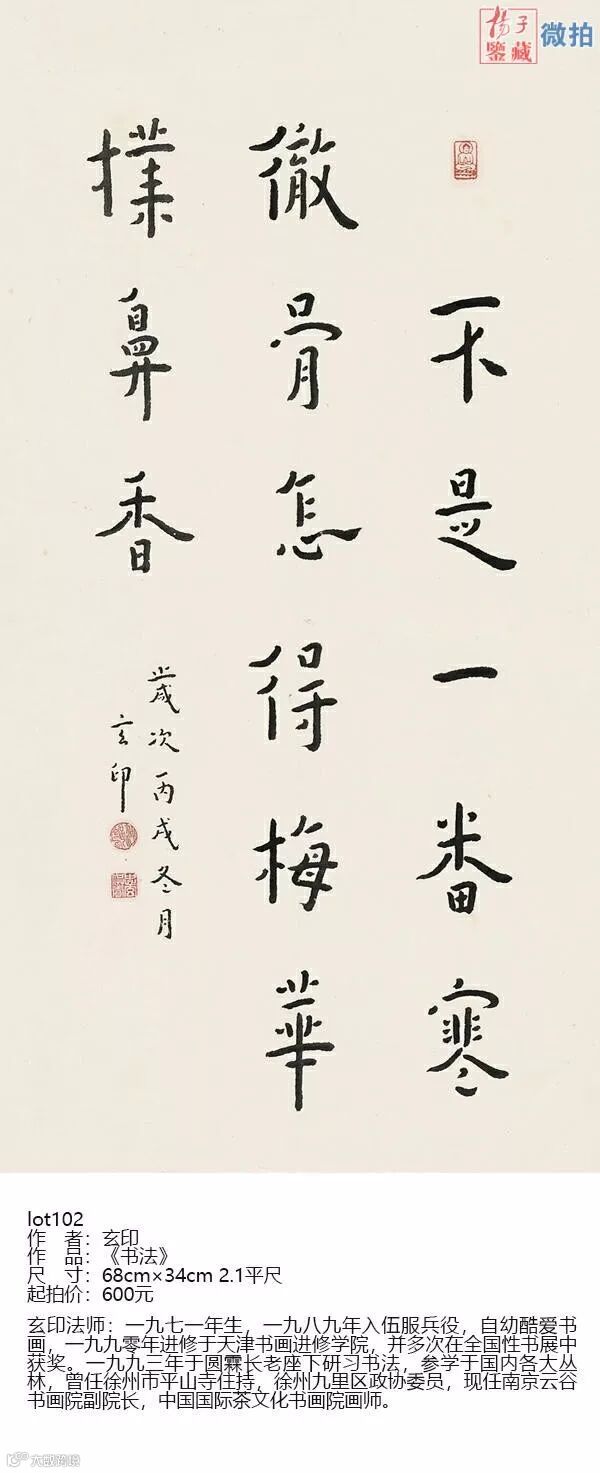 杨子
鉴藏
微拍
不是一番寒
徹骨怎得梅華
撲鼻香
歲次丙戌冬月
玄印
lot102
作 者：玄印
作 品：《书法》
尺 寸：68cm×34cm 2.1平尺
起拍价：600元
玄印法师：一九七一年生，一九八九年入伍服兵役，自幼酷爱书
画，一九九零年进修于天津书画进修学院，并多次在全国性书展中
获奖。一九九三年于圆霖长老座下研习书法，参学于国内各大丛
林，曾任徐州市平山寺住持，徐州九里区政协委员，现任南京云谷
书画院副院长，中国国际茶文化书画院画师。
大威跨境